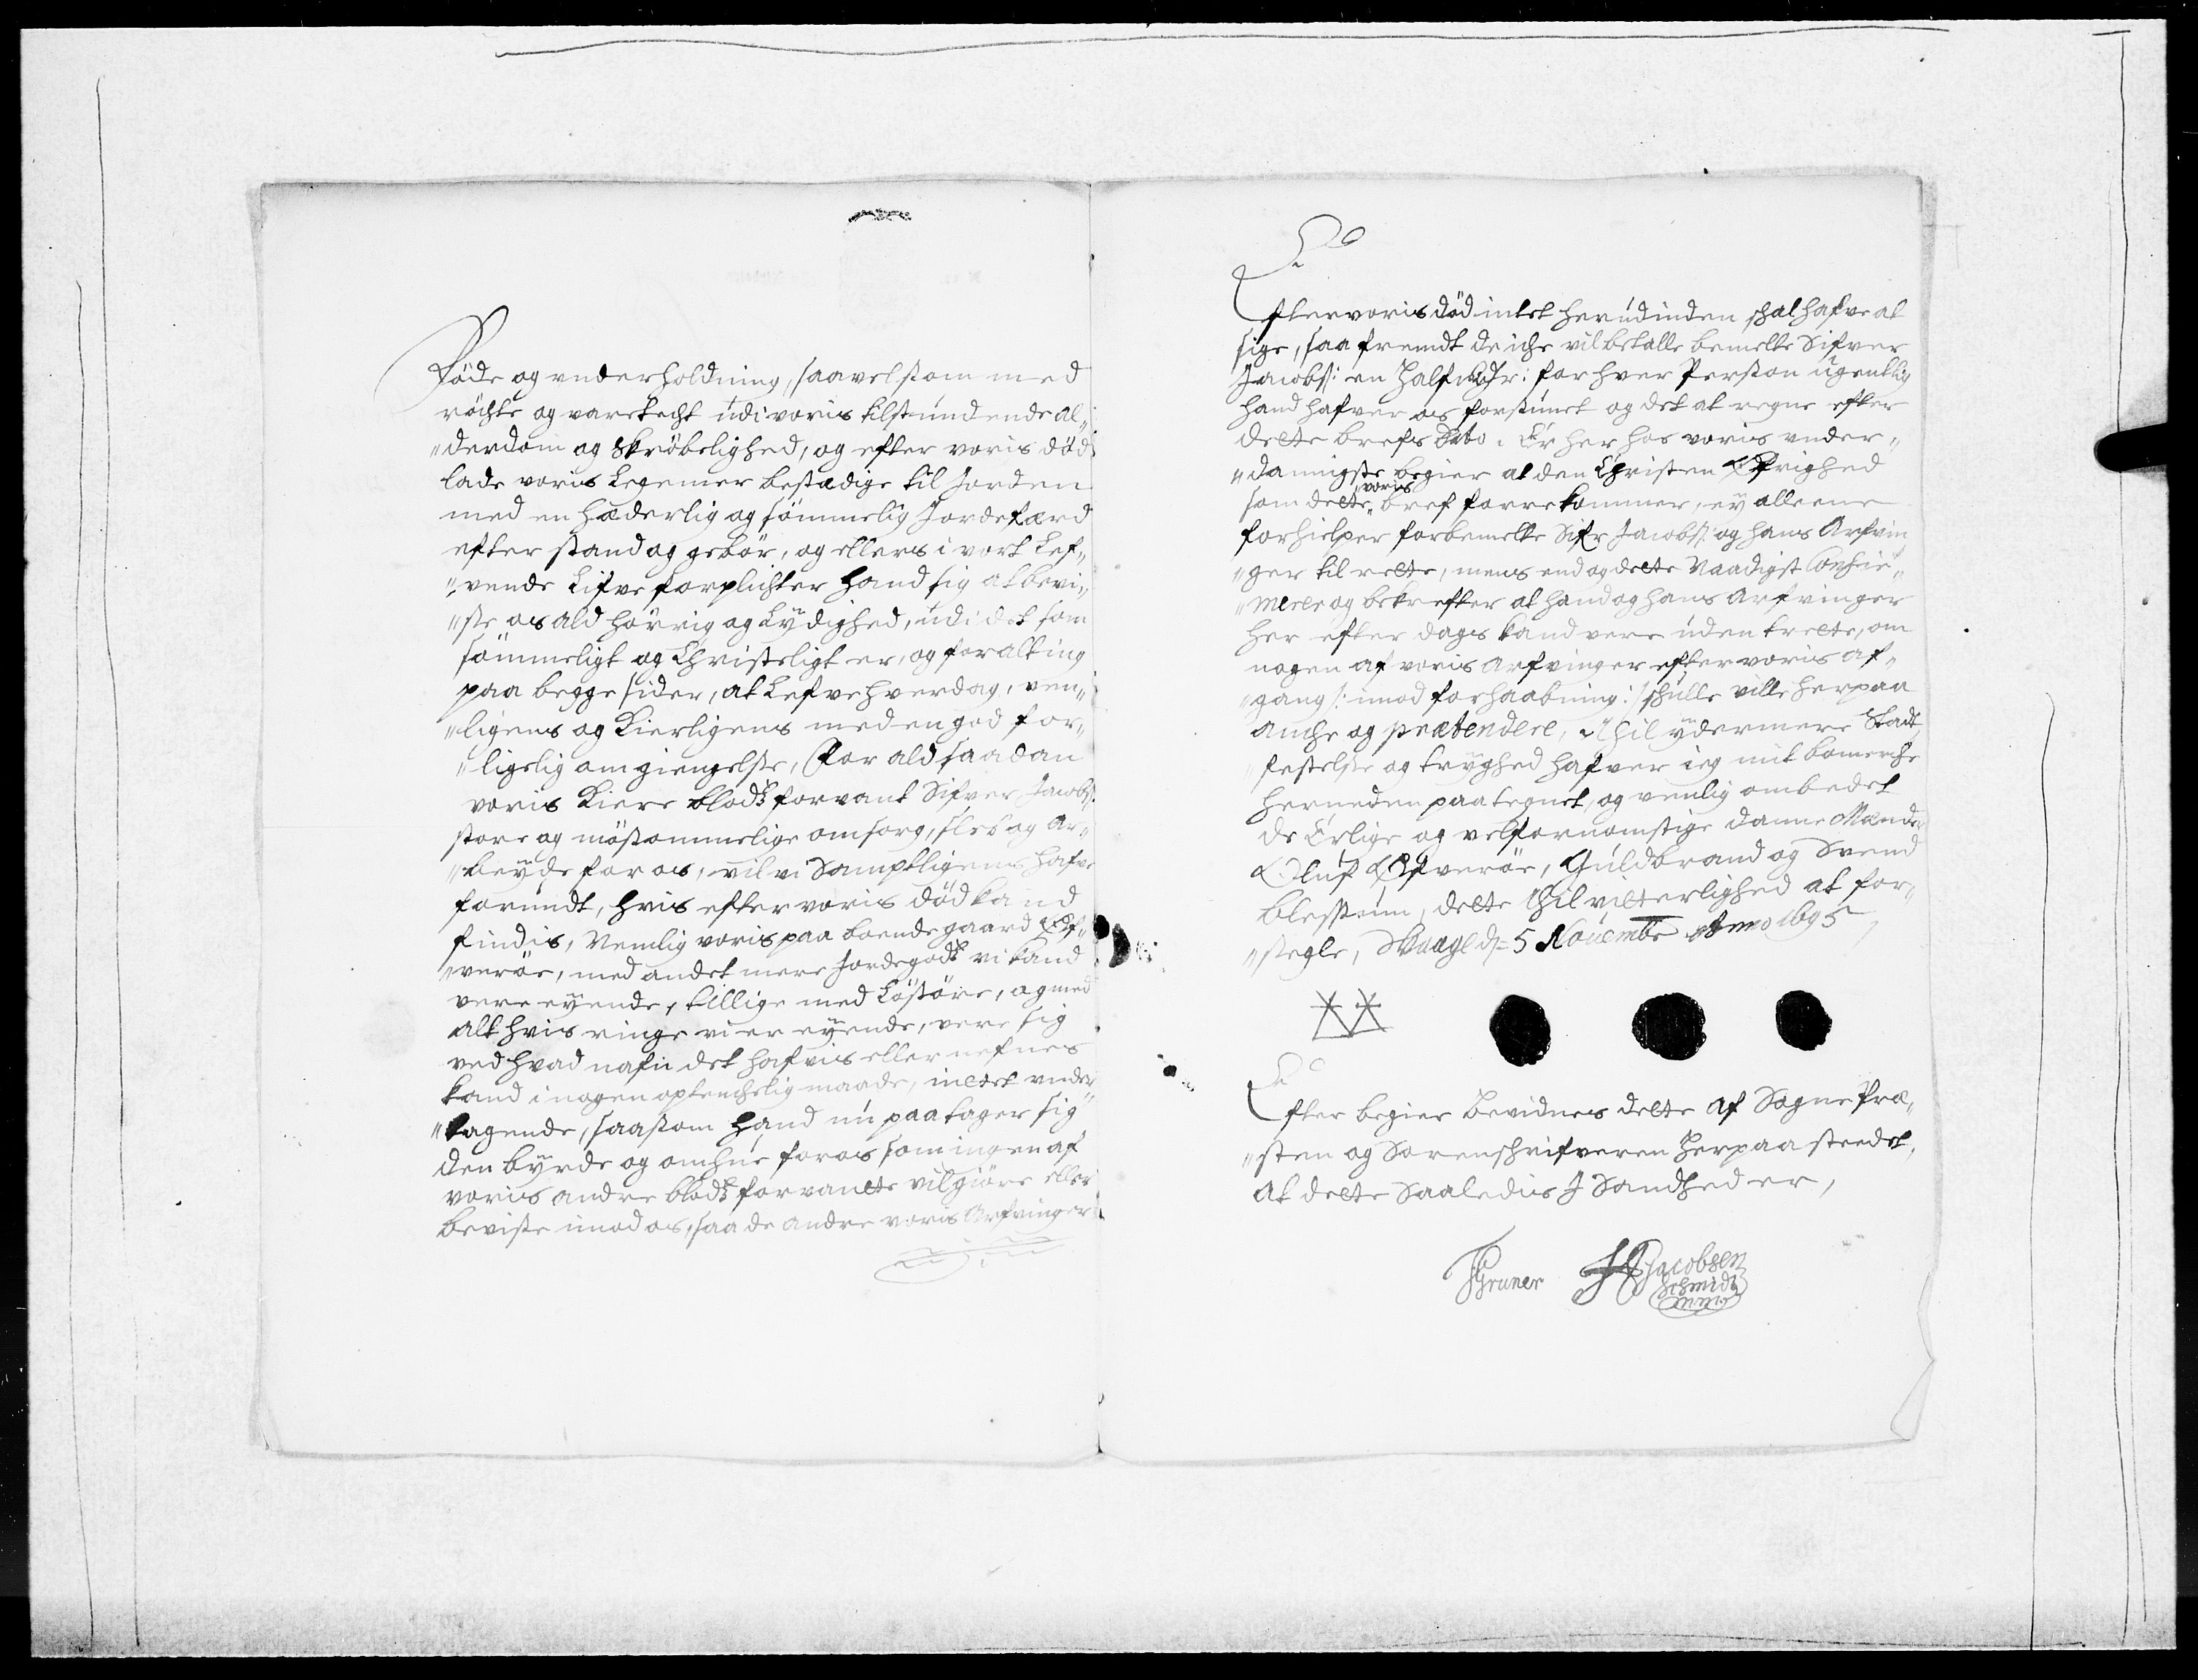 Föde og vnderholdning, saavelsom med
röchte og varetecht udi voris tilstundende al„
„derdom og Skröbelighed, og efter voris död
lade voris Legemer bestædige til Jorden
med en hæderlig og sömmelig Jordefærd
efter stand og gebör, og ellers i vort Lef„
„vende Lifve forplichter hand sig at bevi„
„se os ald hörrig og Lydighed, udi det som
sömmeligt og Christeligt er, og for alting
paa begge sider, at Lefve hver dag, ven„
„ligens og Kierligens med en god for„
„ligelig omgiengelse, For ald saadan
voris Kiere blodtz forvant Sifver Jacobs:
store og mösommelige omsorg, slæb og Ar„
„beyde for os, vil vi Samptligens hafve
forundt, hvis efter voris död kand
findis, Nemlig voris paa boende gaard Öf„
„veröe, med andet mere Jordegodtz vi kand
vere eyende, tillige med Lösöre, og med
alt hvis ringe vi er eyende, vere sig
ved hvad nafn det hafvis eller nefnes
kand i nogen optenchelig maade, intet under
„tagende, saasom hand nu paatager sig
den byrde og omhue for os som ingen af
voris andre blodtz forvante vil giöre eller
bevise imod os, saa de andre voris Arfvinger
Efter voris död intet herudinden schal hafve at
sige, saa fremdt de iche vil betalle bemelte Sifver
Jacobs: en half Rdr: for hver Person ugentlig
hand hafver os forsunet og det at regne efter
dette brefs dato. Er her hos voris vnder„
„danigste begier at den Christen Öfrighed
som dette voris bref forrekommer, ey alleene
forhielper forbemelte Sifr Jacobs: og hans Arfvin
„ger til rette, mens end og dette Naadigst Confir„
„merer og bekrefter at hand og hans Arfvinger
her efter dags kand vere uden trette, om
nogen af voris Arfvinger efter voris af„
„gang /: imod forhaabning :/ schulle ville herpaa
anche og prætendere, Thil ydermere Stad„
„festelse og tryghed hafver ieg mit bomerche
herneden paategnet, og venlig ombedet
de Erlige og velfornomstige Danne Mænder
Oluf Öfveröe, Guldbrand og Svend
Blessum, dette thil vitterlighed at for„
„segle, Vaage d= 5 Novembr Anno 1695
Efter begier bevidnes dette af Sogne Præ„
„sten og Sorenschrifveren herpaa steedet,
At dette Saaledis I Sandhed er,
PGruner Jacobsen
Schmidt